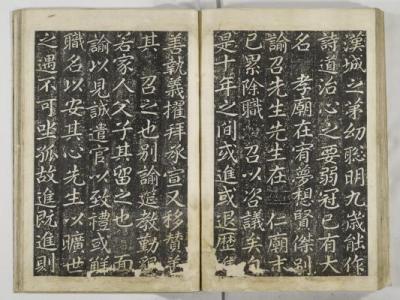 漢城之第幼聡明九歳能作
詩道治心之要弱冠已有大
名　孝廟在宥夢想賢傑別
諭召先生先生在　仁廟末
已累除職　召以咨議矣自
是十年之間或進或退歴
善執義擢拜承宣又移賛善
其　召之也別諭造教勤
若家人父子其留之也　面
諭以見誠遣官以致禮或解
職名以安其心先生以曠世
之遇不可坐孤故進既進則